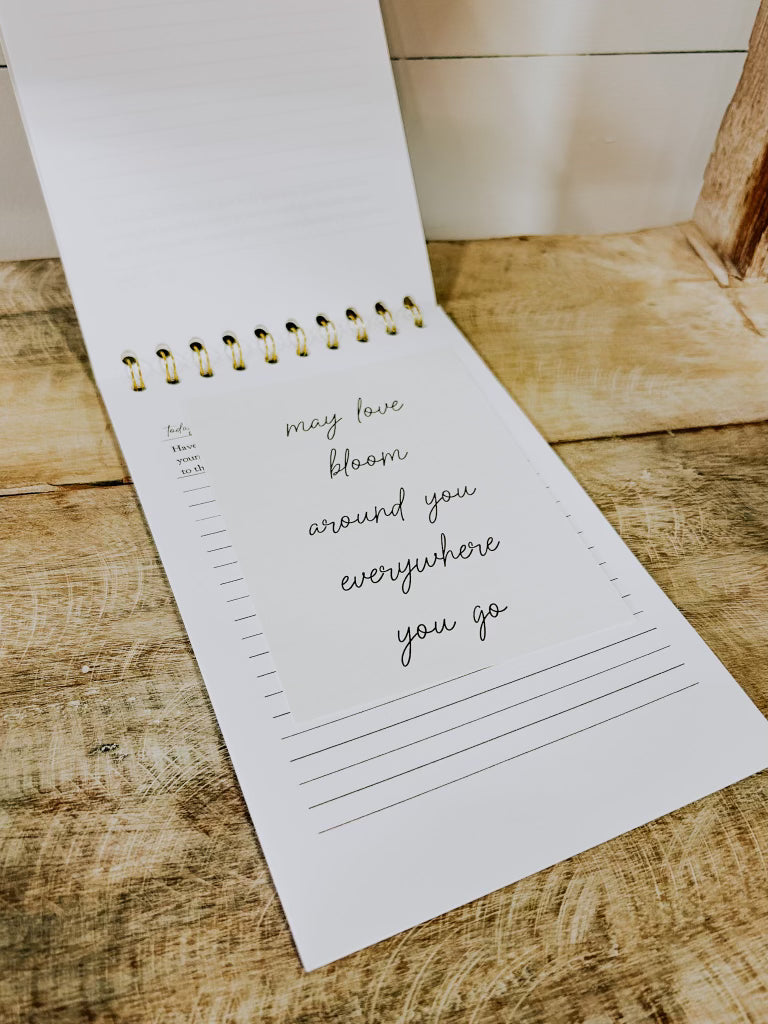 Have
your
to th
may love
bloom
around you
everywhere
you go